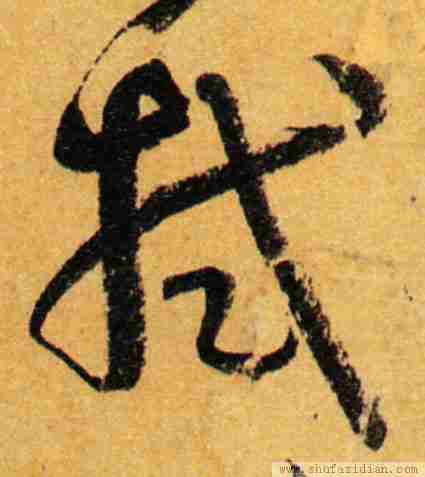 拭
www.shufazidian.com